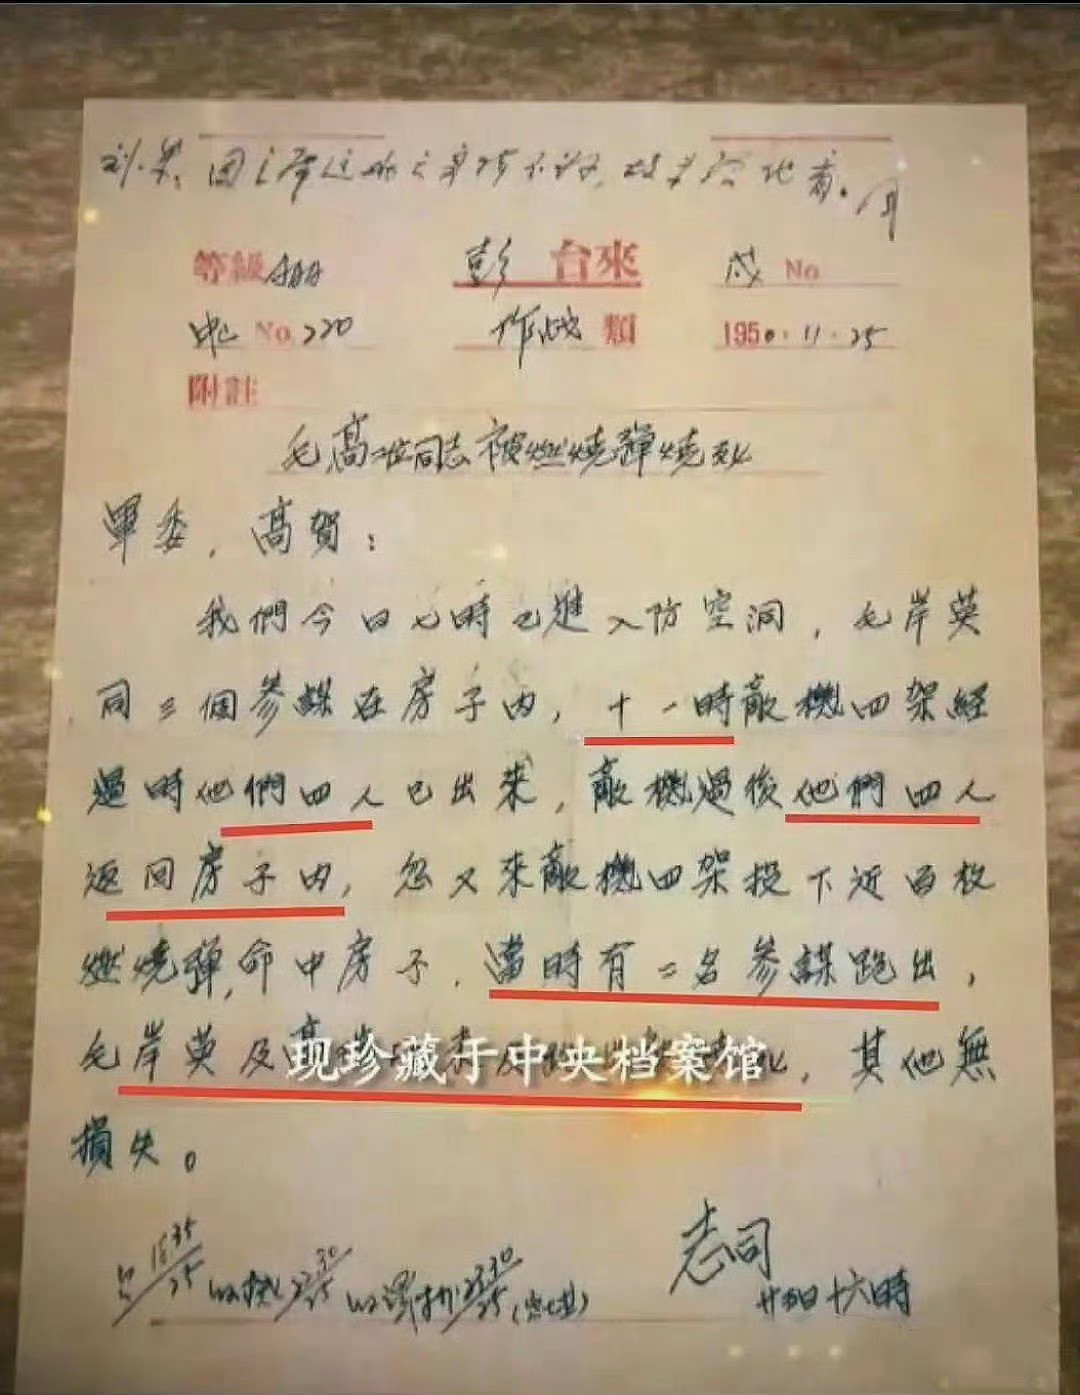 刘、朱:因主席这两天身体不好,故未给他看。周
等級AAA 彭台來 戌No
No.220 作战類 1950.11.25
附註
毛高二位同志被燃燒彈燒死
軍委,高賀:
我們今日七時已進入防空洞,毛岸英
同三個參謀在房子内,十一時敵機四架經
過時他們四人已出來,敵機過後他們四人
返回房子内,忽又來敵機四架投下近百枚
燃燒彈,命中房子,當時有二名參謀跑出,
毛岸英及高 ,其他無
现珍藏于中央档案馆
損失。
志司
廿五日十六時
16 35/25 22 30/25 23 30/25